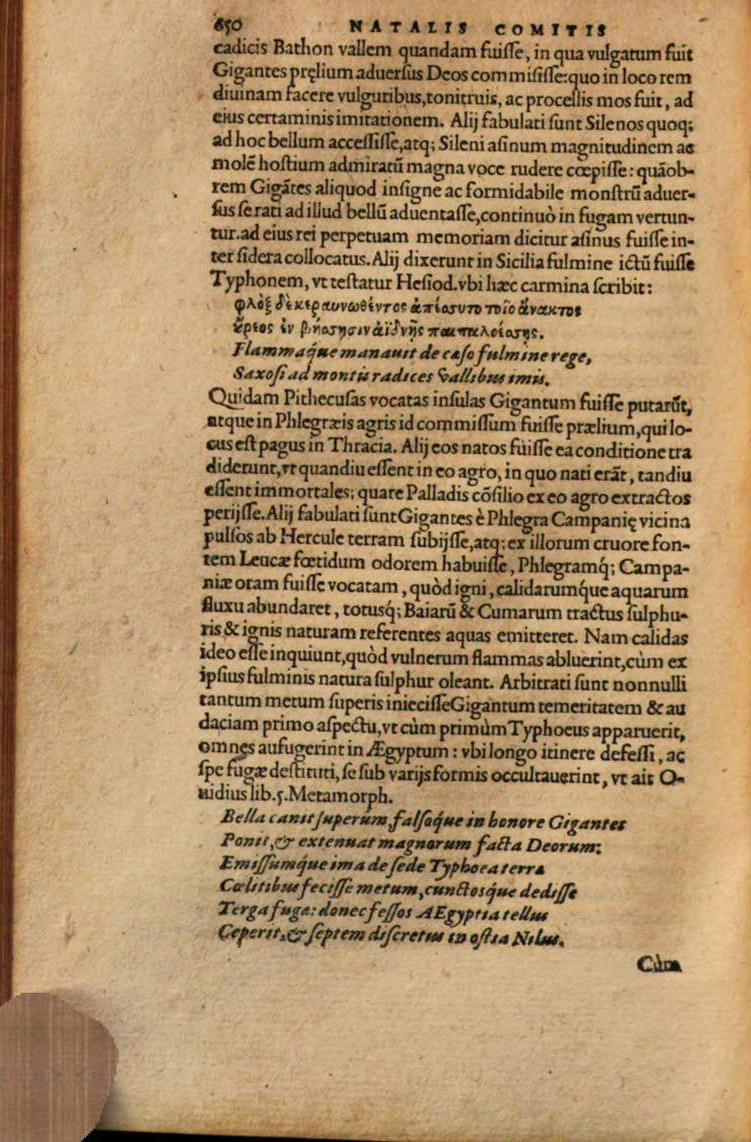 650 NATALIS COMITIS
cadicis Bathon vallem quandam fuiſſe, in qua vulgatum fuit
Gigantes pręlium aduerſus Deos commiſiſſe: quo in loco rem
diuinam facere vulguribus, tonitruis, ac procellis mos fuit, ad
eius certaminis imitationem. Alij fabulati ſunt Silenos quoq;
ad hoc bellum acceſſiſſe, atq; Sileni aſinum magnitudinem ac
molē hoſtium admiratū magna voce rudere cœpiſſe: quāob-
rem Gigātes aliquod inſigne ac formidabile monſtrū aduer-
ſus ſe rati ad illud bellū aduentaſſe, continuò in fugam vertun-
tur. ad eius rei perpetuam memoriam dicitur aſinus fuiſſe in-
ter ſidera collocatus. Alij dixerunt in Sicilia fulmine ictū fuiſſe
Typhonem, vt teſtatur Heſiod. vbi hæc carmina ſcribit:
φλὸξ δὲ κεραυνωθέντος ἀπέσσυτο τοῖο ἄνακτος
ὄρεος ἐν βήσσῃσιν ἀϊδνῇς παιπαλοέσσης.
Flammaq́ue manauit de cæſo fulmine rege,
Saxoſi ad montis radices vallibus imis.
Quidam Pithecuſas vocatas inſulas Gigantum fuiſſe putarūt,
atque in Phlegræis agris id commiſſum fuiſſe prælium, qui lo-
cus eſt pagus in Thracia. Alij eos natos fuiſſe ea conditione tra
diderunt, vt quandiu eſſent in eo agro, in quo nati erāt, tandiu
eſſent immortales; quare Palladis cōſilio ex eo agro extractos
perijſſe. Alij fabulati ſunt Gigantes è Phlegra Campanię vicina
pulſos ab Hercule terram ſubijſſe, atq; ex illorum cruore fon-
tem Leucæ fœtidum odorem habuiſſe, Phlegramq́; Campa-
niæ oram fuiſſe vocatam, quòd igni, calidarumq́ue aquarum
fluxu abundaret, totusq́; Baiarū & Cumarum tractus ſulphu-
ris & ignis naturam referentes aquas emitteret. Nam calidas
ideo eſſe inquiunt, quòd vulnerum flammas abluerint, cùm ex
ipſius fulminis natura ſulphur oleant. Arbitrati ſunt nonnulli
tantum metum ſuperis inieciſſe Gigantum temeritatem & au
daciam primo aſpectu, vt cùm primùm Typhoeus apparuerit,
omnes aufugerint in Ægyptum: vbi longo itinere defeſſi, ac
ſpe fugæ deſtituti, ſe ſub varijs formis occultauerint, vt ait O-
uidius lib. 5. Metamorph.
Bella canit ſuperum, falſoq́ue in honore Gigantes
Ponit, & extenuat magnorum facta Deorum:
Emiſſumq́ue ima de ſede Typhoea terra
Cœlitibus feciſſe metum, cunctosq́ue dediſſe
Terga fugæ: donec feſſos AEgyptia tellus
Ceperit, & ſeptem diſcretus in oſtia Nilus.
Cùm